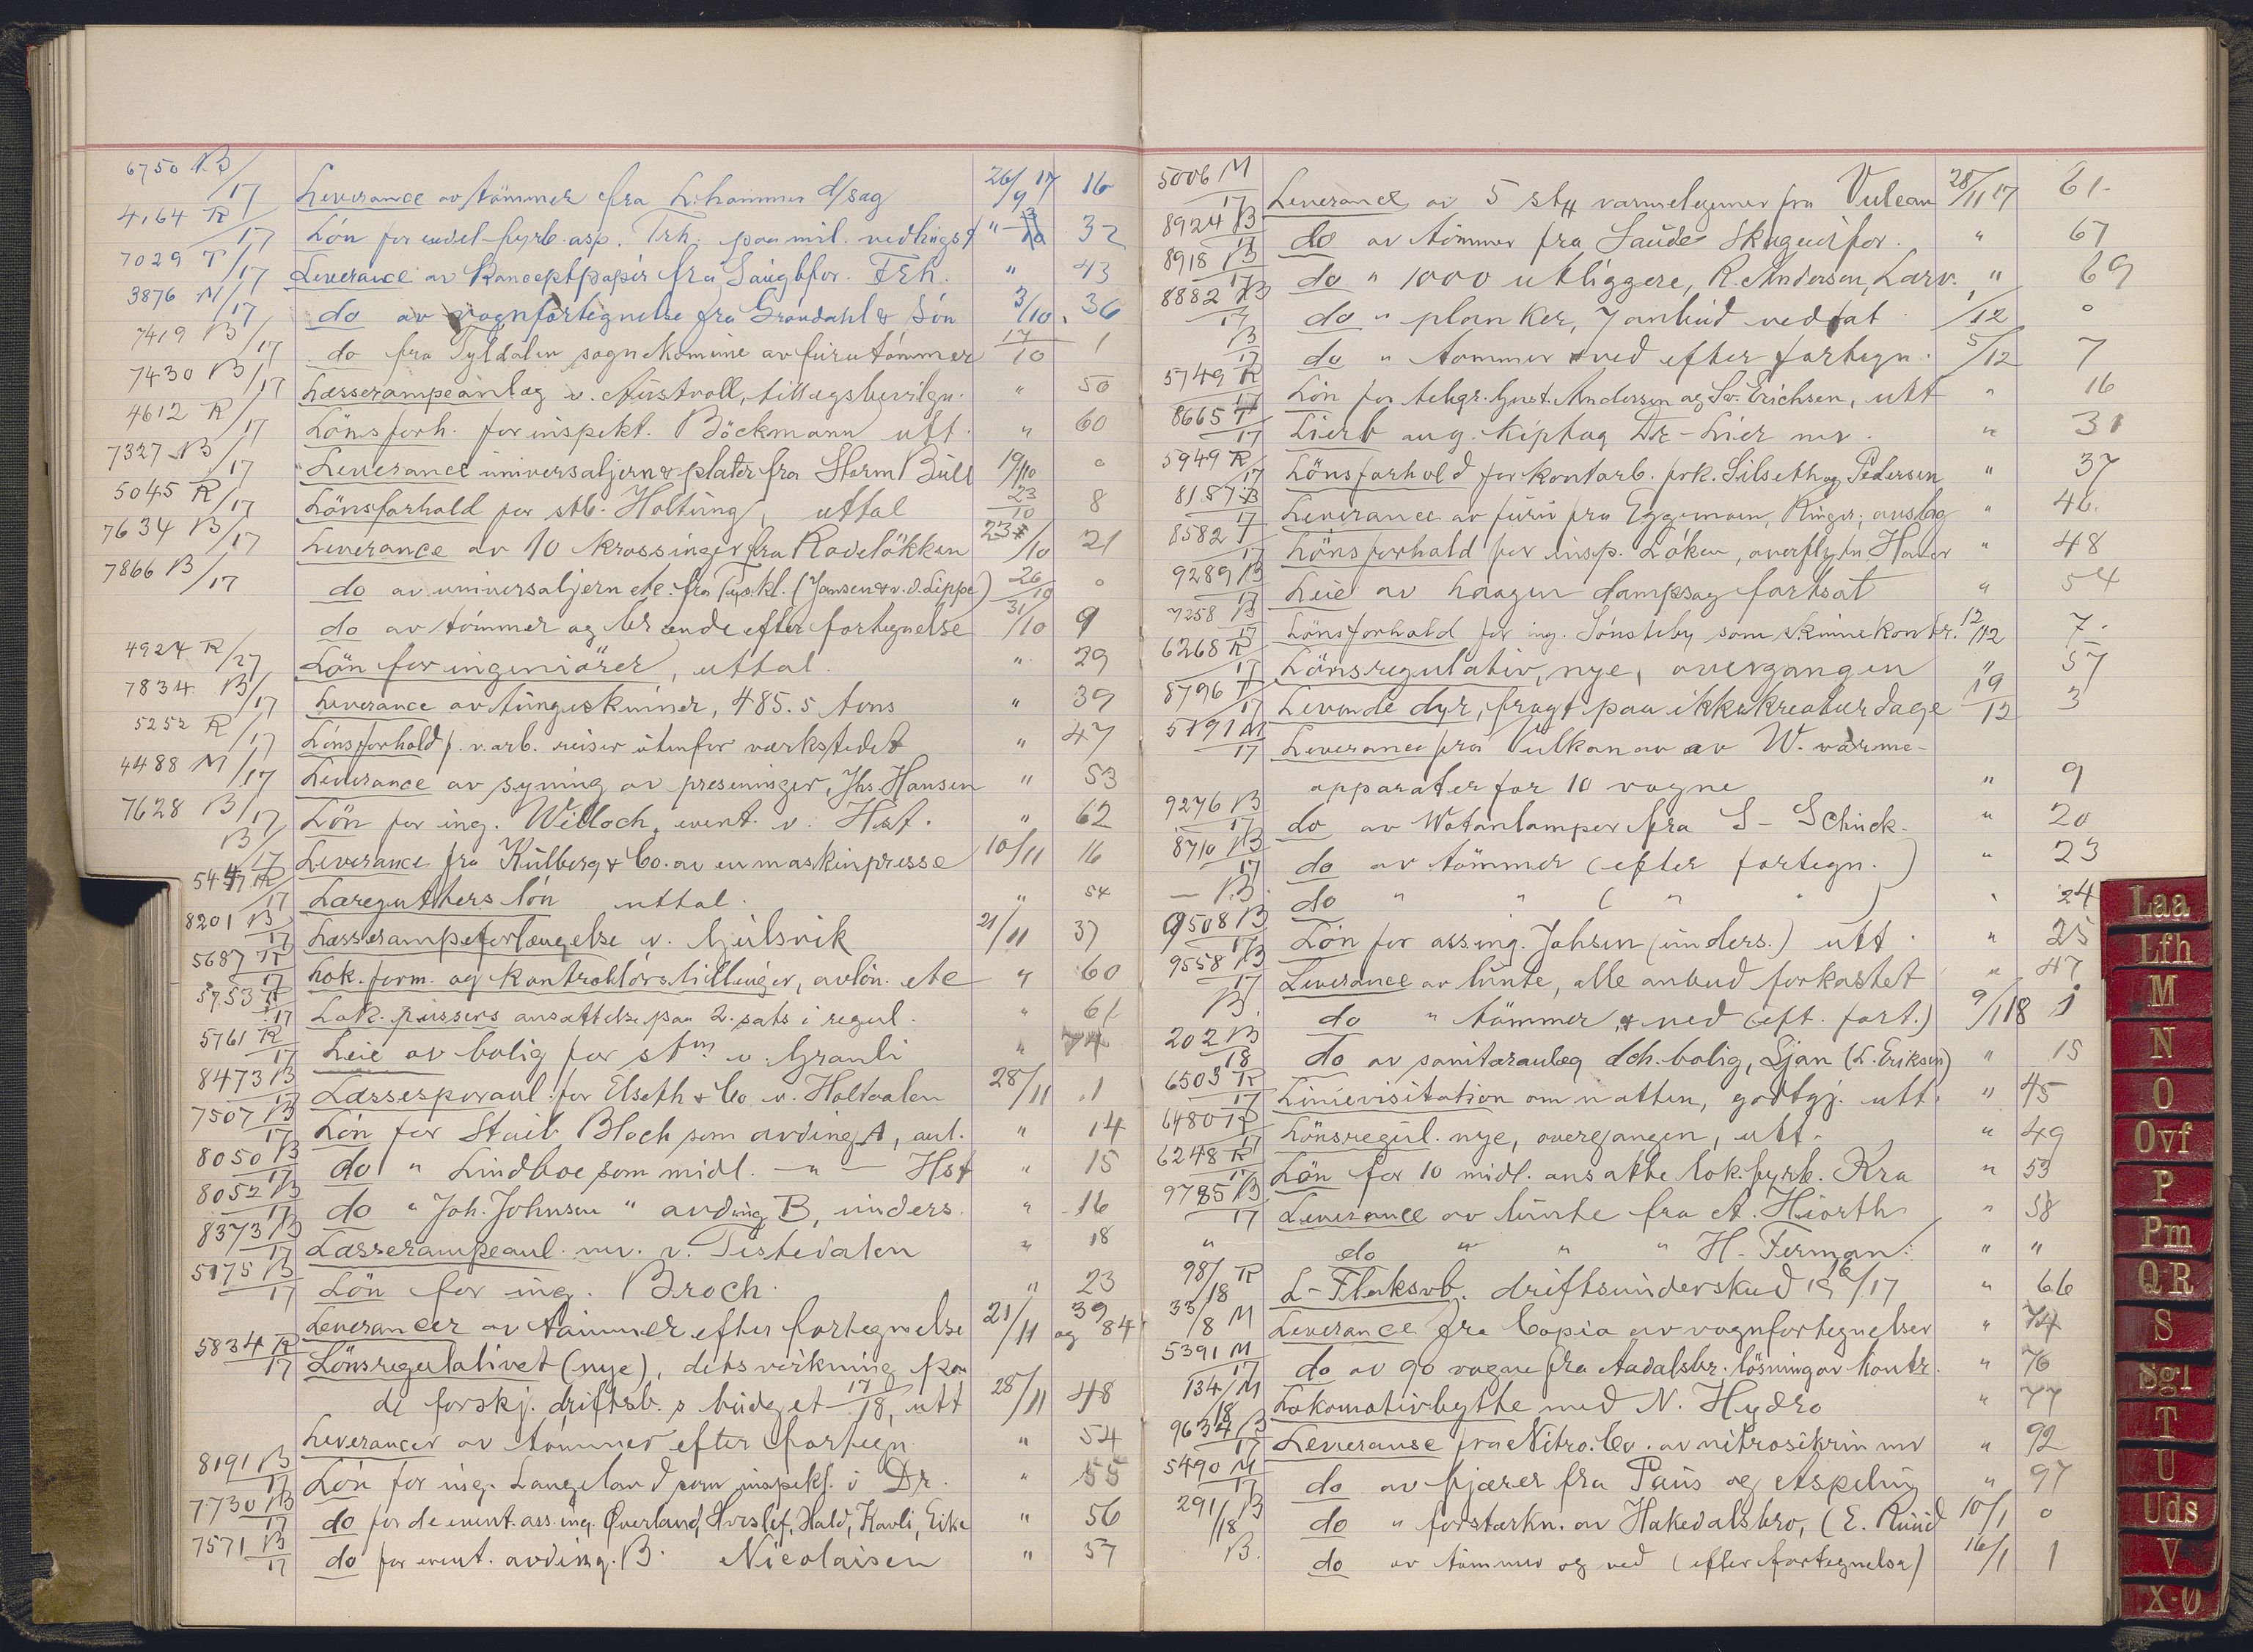 6750 B/17 Leverance av tömmer fra L.hammer d/sag 26/9 17 16
4164 R/17 Lön for endel fyrb. asp. Trh. paa mil. " 32
7029 T/17 Leverance av Konceptpapir fra Saugbfor. Frh. " 43
3876 M/17 do av vognfortegnelse fra Gröndahl & Sön 3/10 36
7419 B/17 do fra Tyldalen sognekomune av furutömmer 17/10 1
7430 B/17 Læsserampeanlæg v. Austvoll, tillægsbevilgn. " 50
4612 R/17 Lönsforh. for inspekt. Böckmann utt. " 60
7327 B/17 Leverance universaljern & plater fra Storm Bull 19/10 0
5045 R/17 Lönsforhold for stb. Holtung, uttal 23/10 8
7634 B/17 Leverance av 10 krossinger fra Rodelökken 23/10 21
7866 B/17 do av universaljern etc. fra Tyskl. (Jansen & v.d. Lippe) 26/10 0
do av tömmer og brænde efter fortegnelse 31/10 9
4924 R/17 Lön for ingeniörer, uttal. " 29
7834 B/17 Leverance av tungeskinner, 485.5 tons " 39
5252 R/17 Lönsforhold f. v.arb. reiser utenfor værkstedet " 47
4488 M/17 Leverance av syning av preseninger, Jhs. Hansen " 53
7628 B/17 Lön for ing. Willoch, event. v. Hst. " 62
B/17 Leverance fra Kulberg & Co. av en maskinpresse 10/11 16
5447 R/17 Læregutters lön uttal. " 54
8201 B/17 Læsserampeforlængelse v. Gjulsvik 21/11 37
5687 R/17 Lok.form. og Kontrollörstillinger, avlön. etc " 60
5753 R/17 Lok. pussers ansættelse paa 2. sats i regul. " 61
5761 R/17 Leie av bolig for stm v. Granli " 74
8473 B/17 Læssesporanl. for Elseth & Co v. Holtaalen 28/11 1
7507 B/17 Lön for Staib Bloch som avding A, ant. " 14
8050 B/17 do " Lindboe som midl. — " — Hst " 15
8052 B/17 do " Joh. Johnsen " avding B, unders. " 16
8373 B/17 Læsserampeanl. nv. v. Tistedalen " 18
5175 B/17 Lön for ing. Broch. " 23
Leverancer av tömmer efter fortegnelse 21/11 39 og 84
5834 R/17 Lönsregulativet (nye), dets virkning paa
de forskj. driftsb.s budget 17/18, utt 28/11 48
Leverancer av tömmer efter fortegn. " 54
8191 B/17 Lön for ing. Langeland som inspekt. i Dr. " 55
7730 B/17 do for de event. ass. ing. Överland, Hvislef, Hald, Kavli, Eike " 56
7571 B/17 do for event. avding. B. Nicolaisen " 57
5006 M/17 Leverance av 5 stk varmelegemer fra Vulcan 28/11 17 61
8924 B/17 do av tömmer fra Saude Skogeierfor. " 67
8918 B/17 do " 1000 utliggere, R. Andersen, Larv. " 69
8882 B/17 do " planker, 7 anbud vedtat /12 0
B/17 do " tømmer & ved efter fortegn. 5/12 7
5749 R/17 Lön for telegr. Gust. Anderssen og Sv. Erichsen, utt " 16
8665 T/17 Lierb ang. kiptog Dr - Lier mv. " 31
5949 R/17 Lönsforhold for kontorb. frk. Silseth og Pedersen " 37
8187 B/17 Leverance av furu fra Eggemoen, Ringer., avslag " 46
8582 T/17 Lönsforhold for insp. Löken, overflytn Hamar " 48
9289 B/17 Leie av Haagen dampsag fortsat " 54
7258 B/17 Lönsforhold for ing. Sönsteby som skinnekontr. 12/12 7
6268 R/17 Lönsregulativ, nye, overgangen " 57
8796 T/17 Levende dyr, fragt paa ikke kreaturdage 19/12 3
5191 M/17 Leverance fra Vulkan av av W. varme-
apparater for 10 vogne " 9
9276 B/17 do av Wotanlamper fra S - Schuck. " 20
8710 B/17 do av tömmer (efter fortegn.) " 23
— B. do " " ( " " ) " 24
9508 B/17 Lön for ass.ing. Johsen (unders.) utt. " 25
9558 B/17 Leverance av lunte, alle anbud forkastet " 47
B. do " tömmer & ved (eft. fort.) 9/1 18 1
202 B/18 do av sanitæranlæg dch. bolig, Ljan (L. Eriksen) " 15
6503 R/17 Linievisitation om natten, godtgj. utt. " 45
6480 R/17 Lönsregul. nye, overgangen, utt. " 49
6248 R/17 Lön for 10 midl. ansatte lok.fyrb. Kra " 53
9785 B/17 Leverance av lunte fra A. Hiorth " 58
" do " " " H. Ferman. " "
98/18 R L-Flaksvb. driftsunderskud 1916/17 " 66
33/8 M Leverance fra Copia av vognfortegnelser " 74
5391 M/17 do av 90 vogne fra Aadalsbr. lösning av kontr. " 76
134/18 M Lokomotivbytte med N. Hydro " 77
9634 B/17 Leveranse fra Nitro. Co. av nitrosikrin mv " 92
5490 M/17 do av fjærer fra Paus og Aspelin " 97
291/18 B do " forstærkn. av Hakedalsbro, (E. Ruud 10/1 0
B. do av tömmer og ved (efter fortegnelse) 16/1 1
Laa
Lfh
M
N
O
Ovf
P
Pm
Q-R
S
Sgl
T
U
Uds
V
X-Ø